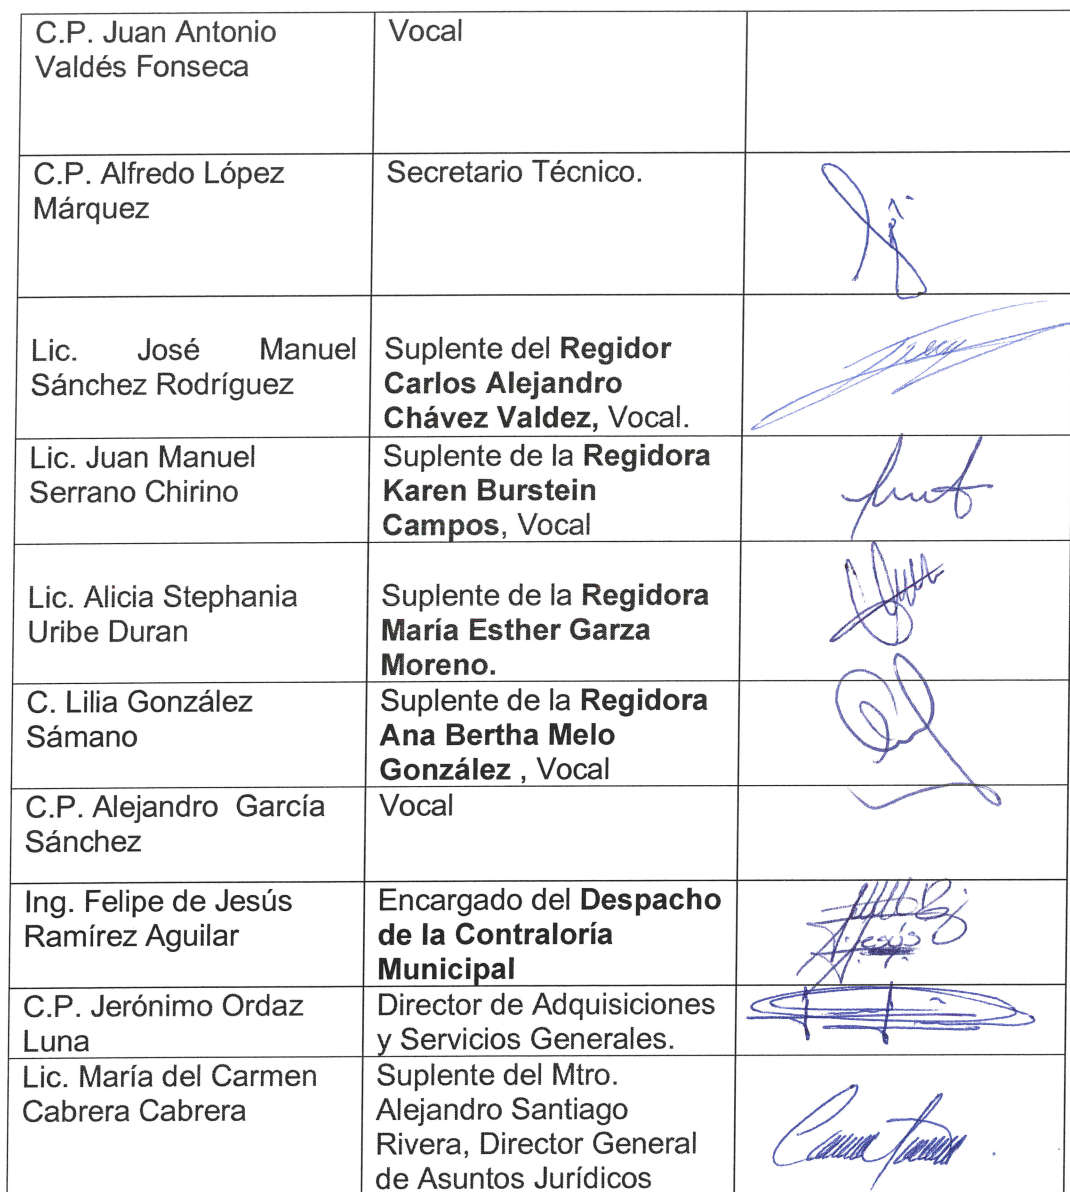 C.P. Juan Antonio
Valdés Fonseca
Vocal
C.P. Alfredo López
Márquez
Secretario Técnico.
Lic. José Manuel
Sánchez Rodríguez
Suplente del Regidor
Carlos Alejandro
Chávez Valdez, Vocal.
Lic. Juan Manuel
Serrano Chirino
Suplente de la Regidora
Karen Burstein
Campos, Vocal
Lic. Alicia Stephania
Uribe Duran
Suplente de la Regidora
María Esther Garza
Moreno.
C. Lilia González
Sámano
Suplente de la Regidora
Ana Bertha Melo
González , Vocal
C.P. Alejandro García
Sánchez
Vocal
Ing. Felipe de Jesús
Ramírez Aguilar
Encargado del Despacho
de la Contraloría
Municipal
Jesús
C.P. Jerónimo Ordaz
Luna
Director de Adquisiciones
y Servicios Generales.
Lic. María del Carmen
Cabrera Cabrera
Suplente del Mtro.
Alejandro Santiago
Rivera, Director General
de Asuntos Jurídicos